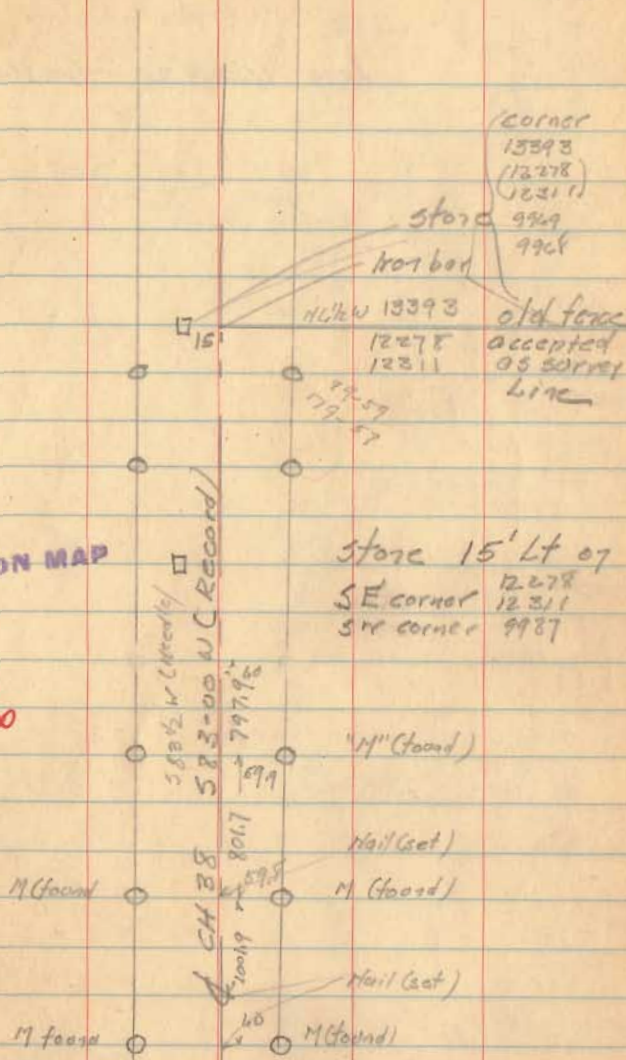 corner
13393
(12278
12311)
9969
9968
Stone
Iron bar
N6½W 13393
12278
12311
old fence
accepted
as survey
Line
15'
79-57
179-57
ON MAP
Stone 15' Lt on
SE corner 12278
12311
SW corner 9987
S83½W (Record)
S83-00 W (Record)
797.9
"M" (found)
69.9
801.7
Nail (set)
59.8
M (found
M (found)
CH 38
1001.9
Nail (set)
60
M found
M (found)